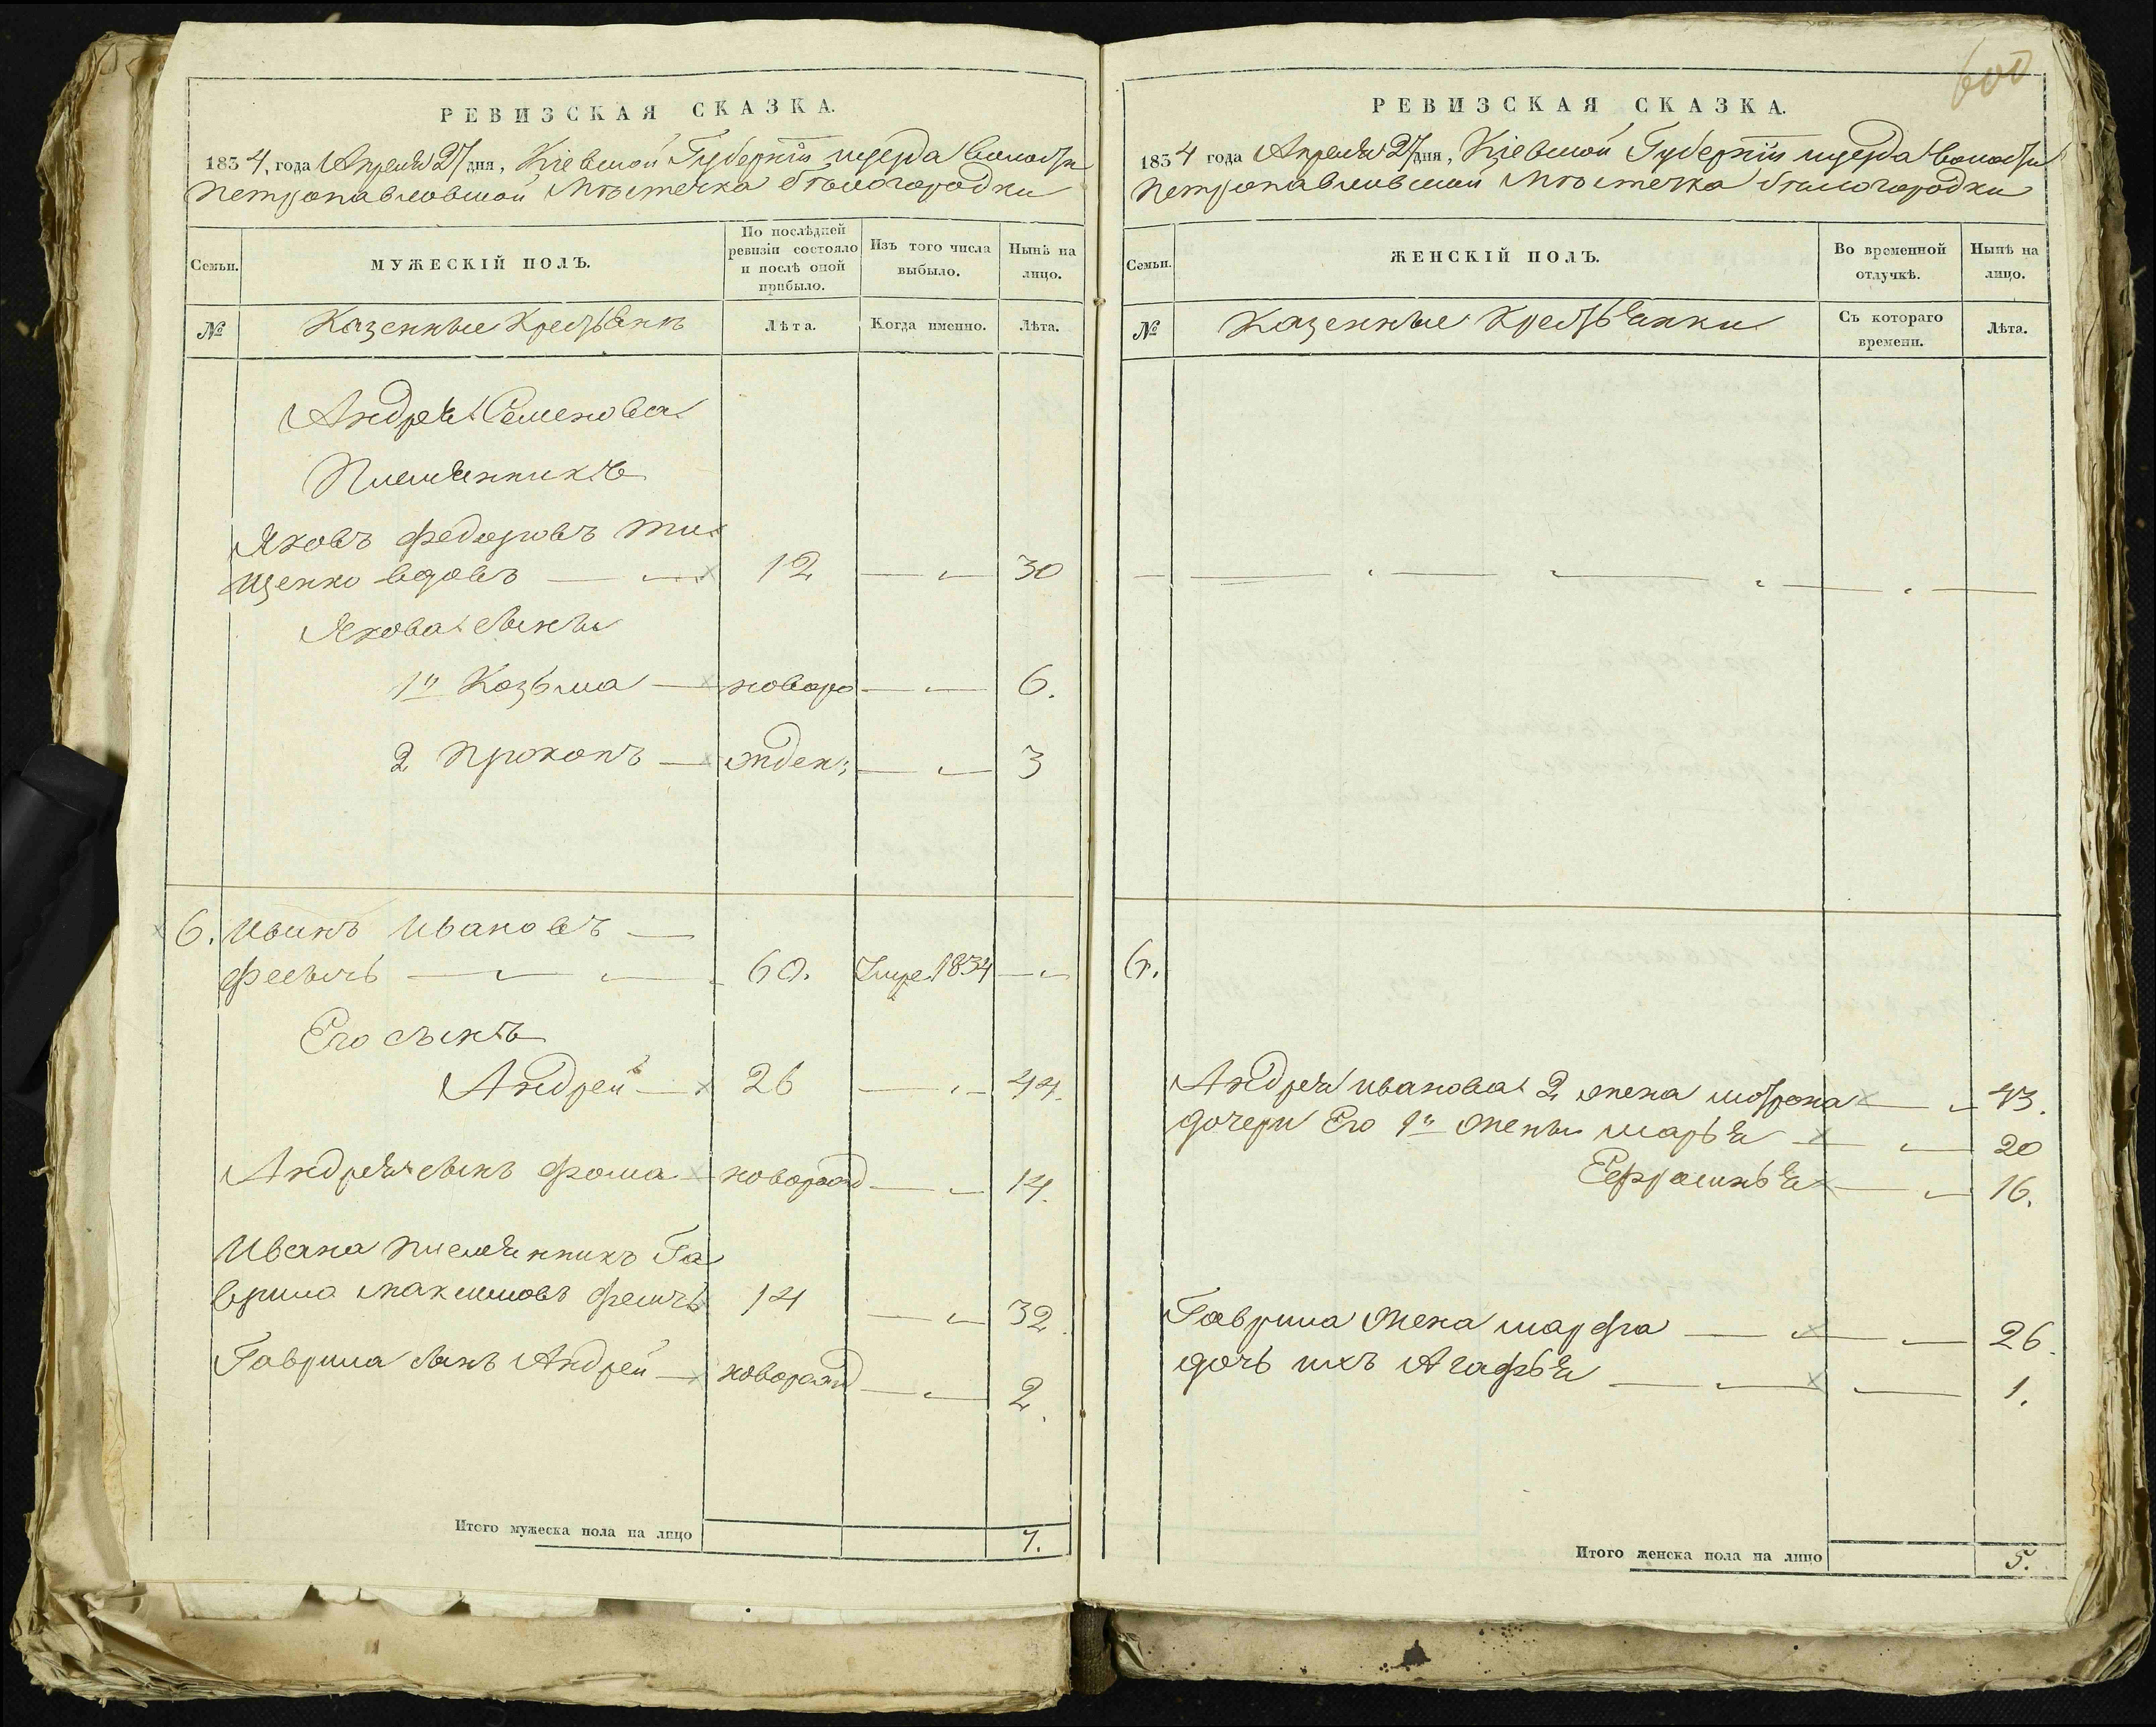 РЕВИЗСКАЯ СКАЗКА.
1834, года Апреля 27 дня, Кіевской Губерніи уезда волости
петропавловской Мѣстечка бѣлогородки
Семьи.
МУЖЕСКІЙ ПОЛЪ.
По послѣдней ревизіи состояло и послѣ оной прибыло.
Изъ того числа выбыло.
Нынѣ на лицо.
№
Казенные Крестьянъ
Лѣта.
Когда именно.
Лѣта.
Андрея Семенова
Племянникъ
Яковъ федоровъ ти
щенко вдовъ 12 30
Якова сынъ
1й Козьма новоро 6.
2 прокопъ жден; 3
6. Иванъ Ивановъ
60. Умре 1834
Его сынъ
Андрей 26 44.
Андрея сынъ фома новорожд 14.
Ивана племянникъ Га
врила максимовъ 14 32.
Гаврила сынъ Андрей новорожд 2.
Итого мужеска пола на лицо 7.
600
РЕВИЗСКАЯ СКАЗКА.
1834 года Апреля 27 дня, Кіевской Губерніи уезда волости
петропавловской Мѣстечка бѣлогородки
Семьи.
ЖЕНСКІЙ ПОЛЪ.
Во временной отлучкѣ.
Нынѣ на лицо.
№
Казенные Крестьянки
Съ котораго времени.
Лѣта.
6.
Андрея иванова 2 жена мотрона 43.
дочери Его 1й жены марья 20
Ефросинья 16.
Гаврила жена марфа 26.
дочь ихъ Агафья 1.
Итого женска пола на лицо 5.